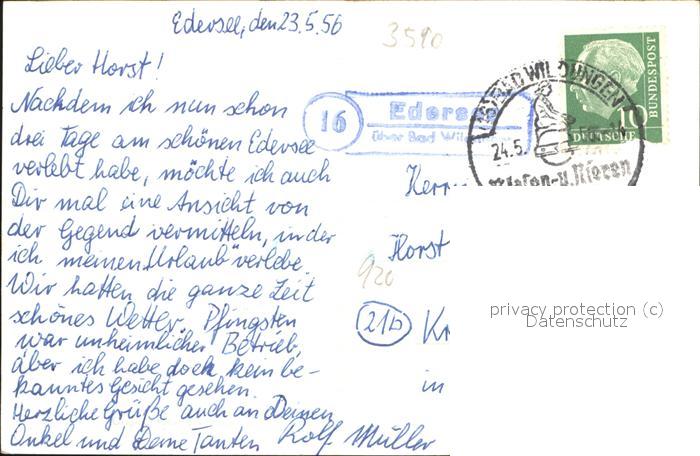 Edersee, den 23.5.56
3590
Lieber Horst!
Nachdem ich nun schon
drei Tage am schönen Edersee
verlebt habe, möchte ich auch
Dir mal eine Ansicht von
der Gegend vermitteln, in der
ich meinen „Urlaub" verlebe.
Wir hatten die ganze Zeit
schönes Wetter. Pfingsten
war unheimlicher Betrieb,
aber ich habe doch kein be-
kanntes Gesicht gesehen.
Herzliche Grüße auch an Deinen
Onkel und Deine Tanten Rolf Müller
16
Eders
über Bad Wil
BAD WILDUNGEN
24.5.
Blasen-u.Nieren
10
DEUTSCHE
BUNDESPOST
Herrn
Horst
920
21b
Kr
in
privacy protection (c)
Datenschutz